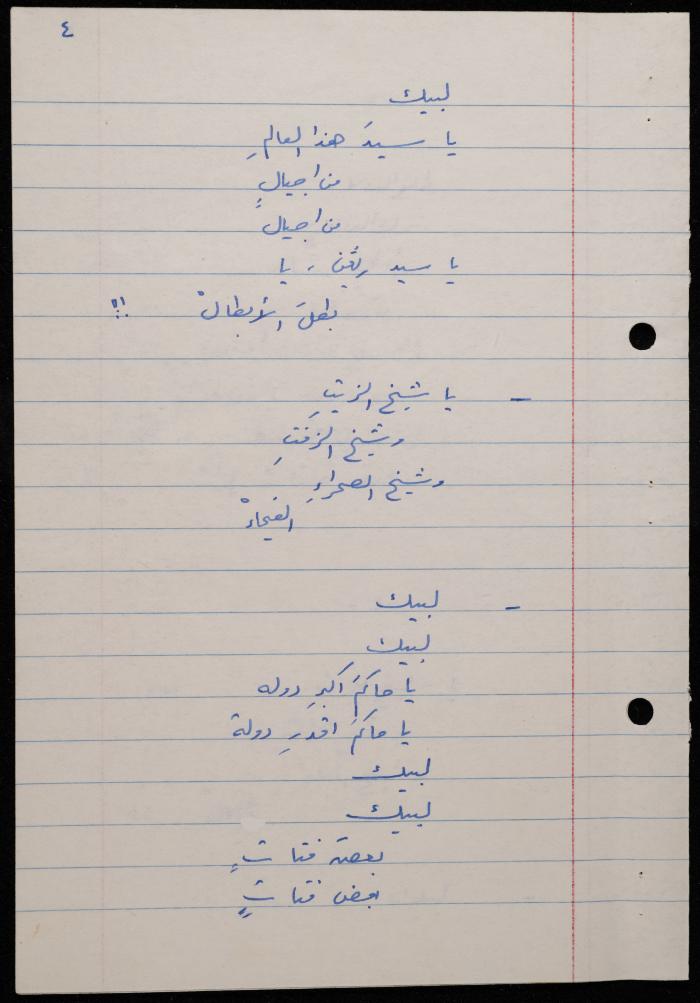 ٤
لبيك
يا سيدَ هذا العالمِ
من اجيالٍ
من اجيال
يا سيد ، يا
بطلَ الأبطالْ !!
ـ يا شيخ الزيتِ
وشيخ الزفتِ
وشيخ الصحراءِ
الفيحاءْ
ـ لبيك
لبيك
يا حاكمَ اكبرِ دوله
يا حاكمَ اقدرِ دولة
لبيك
لبيك
فتاتٍ
بعض فتاتٍ